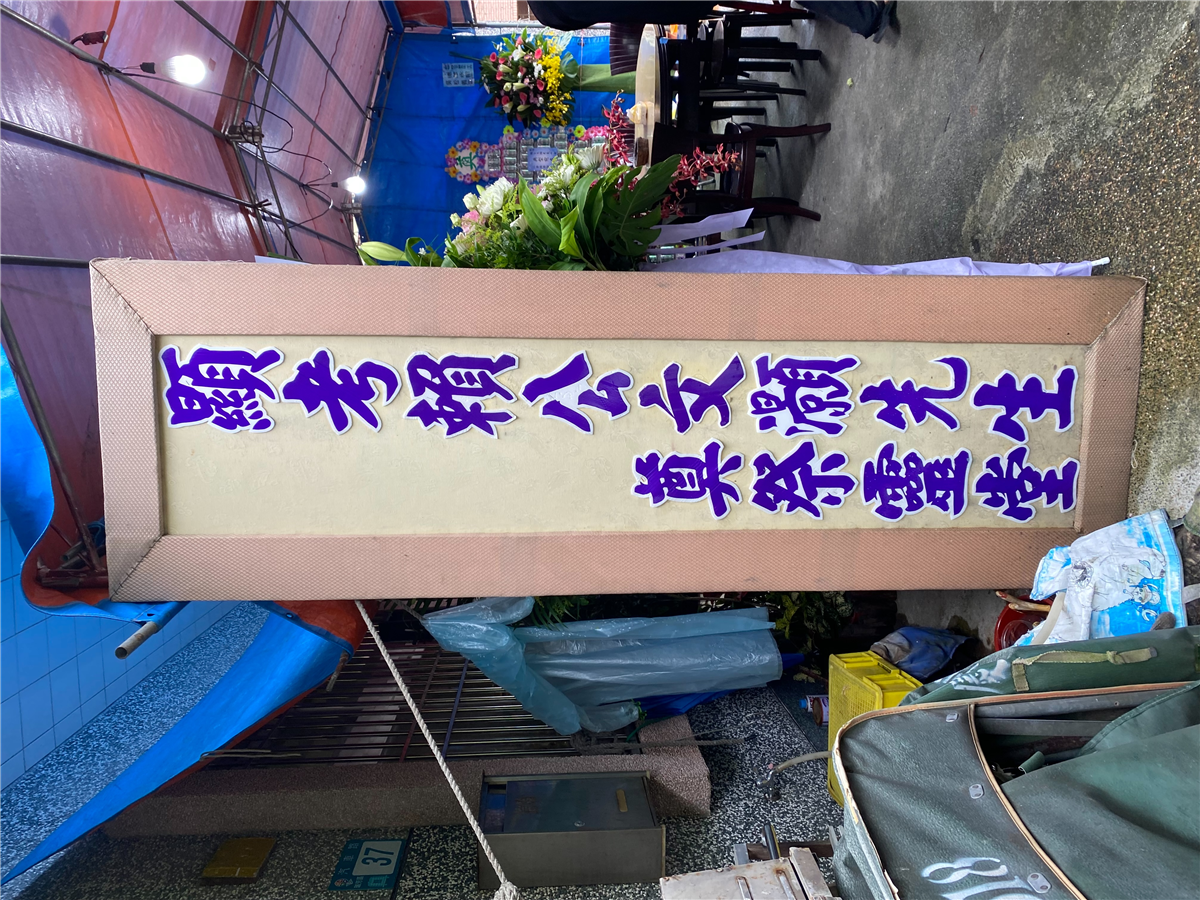 顯考賴公文灝先生
奠祭靈堂
奠
37